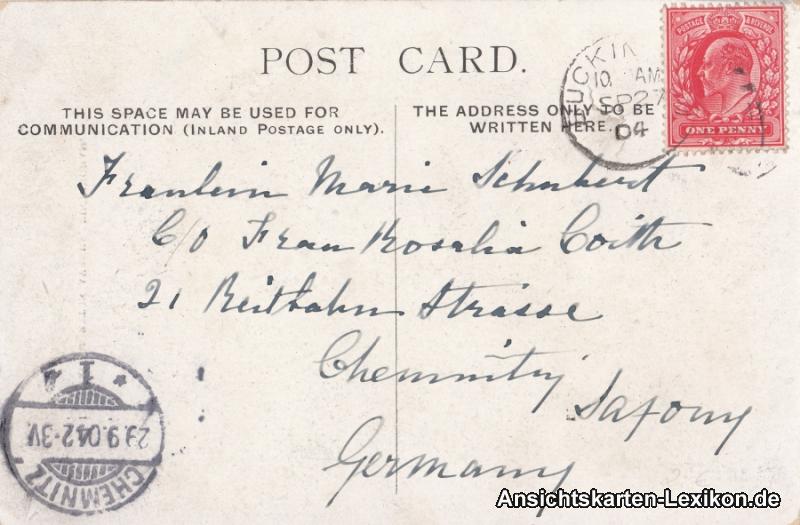 POST CARD.
POSTAGE & REVENUE
ONE PENNY
10 AM
SP 27
04
THIS SPACE MAY BE USED FOR
COMMUNICATION (INLAND POSTAGE ONLY).
THE ADDRESS ONLY TO BE
WRITTEN HERE.
Fraulein Marie Schubert
C/o Frau Rosalia Coith
21 Reitbahn Strasse
Chemnitz
Saxony
Germany
CHEMNITZ
29.9.04.2-3V.
* 1
Ansichtskarten-Lexikon.de